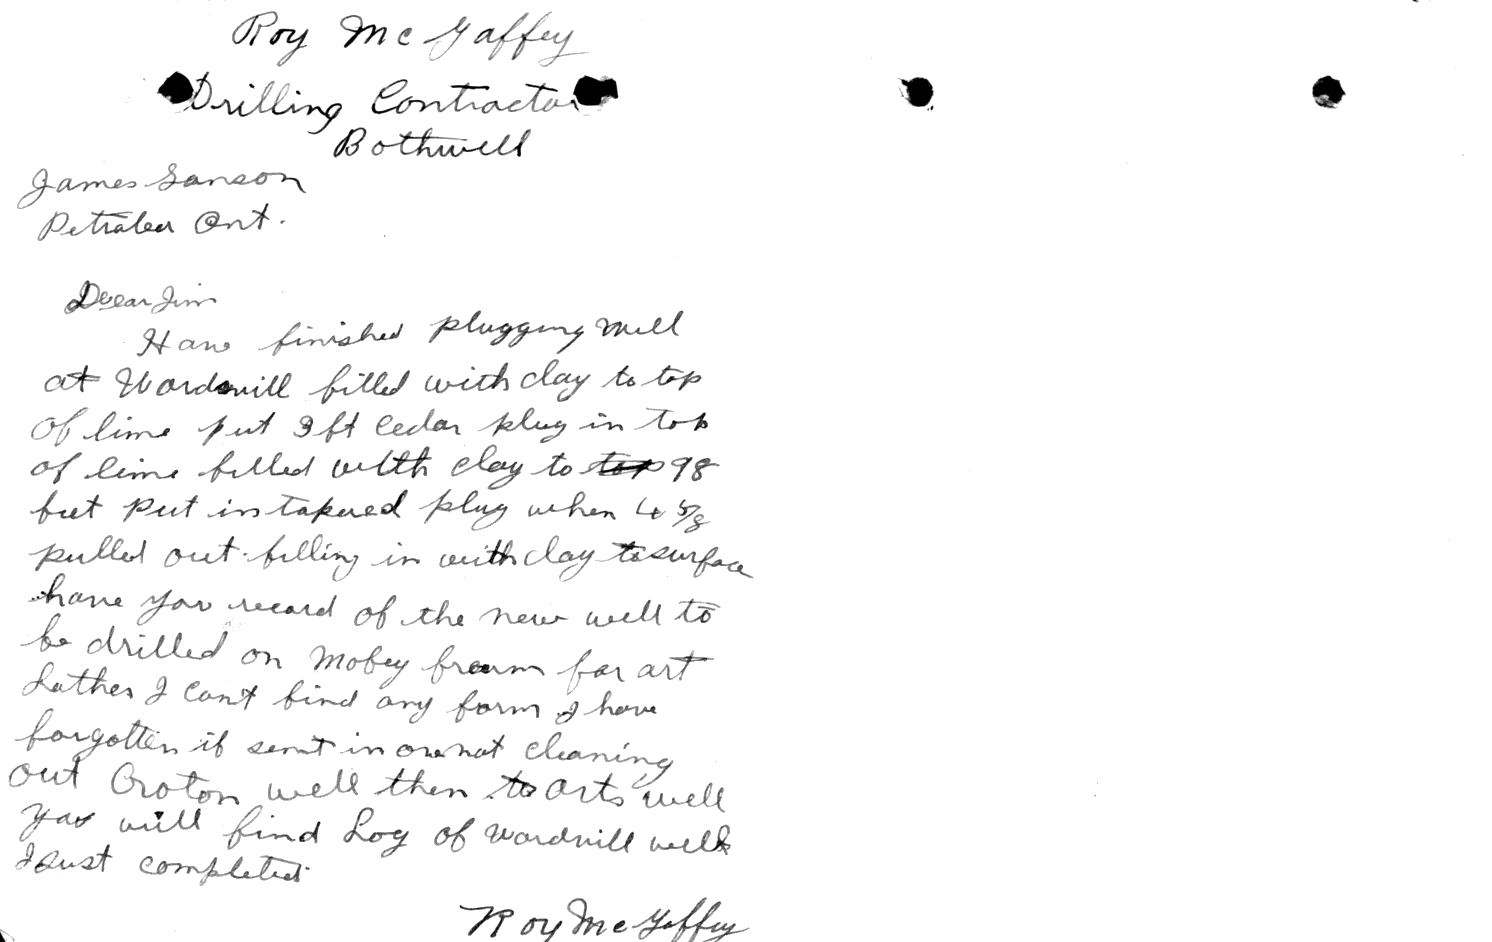 Roy McGaffey
Drilling Contractor
Bothwell
James Sanson
Petrolea Ont.
Deear Jim
Have finished plugging well
at Wardsvill filled with clay to top
of lime put 3 ft cedar plug in top
of lime filled with clay to top 98
feet put in tapered plug when 4 5/8
pulled out filling in with clay to surface
have you record of the new well to
be drilled on Mobey fraerm for art
Lather I cant find any form I have
forgotten if sent in or not cleaning
out Croton well then to Arts well
you will find Log of wardvill well
I just completed
Roy McGaffey